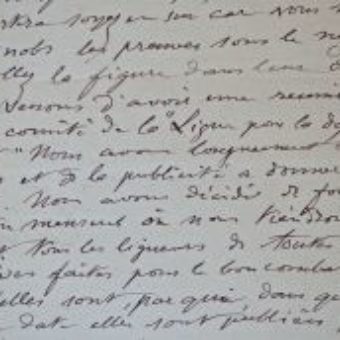 soyez en sur car vous
nobs les preuves sous le ne
la figure dans leur
venons d'avoir une reunio
comité de la "Ligue par la d
"Nous avons longuement
et de la publicité a donner
Nous avons décidé de fo
mensuel où nous tiendron
tous les ligueurs de toutes
faites pour le bon combat
elles sont, par qui, dans qu
date elles sont publiées